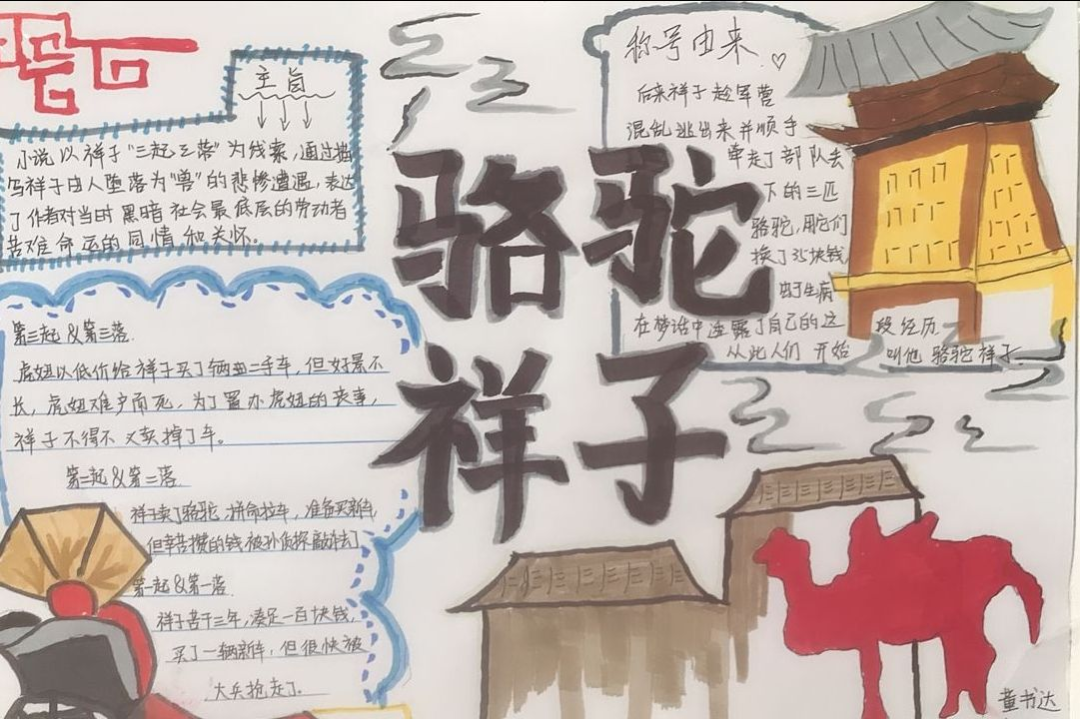 主旨
小说以祥子"三起三落"为线索,通过描
写祥子由人坠落为"兽"的悲惨遭遇,表达
了作者对当时黑暗社会最底层的劳动者
苦难命运的同情和关怀。
骆驼
祥子
称号由来
后来祥子趁军营
混乱逃出来并顺手
牵走了部队去
下的三匹
骆驼,用它们
换了35块钱
由于生病
在梦话中泄露了自己的这段经历
从此人们开始叫他骆驼祥子
第三起&第三落
虎妞以低价给祥子买了辆二手车,但好景不
长,虎妞难产而死,为了置办虎妞的丧事,
祥子不得不又卖掉了车。
第二起&第二落
祥子卖了骆驼,拼命拉车,准备买新车,
但辛苦攒的钱被孙侦探敲诈去了
第一起&第一落
祥子苦干三年,凑足一百块钱,
买了一辆新车,但很快被
大兵抢走了。
童书达